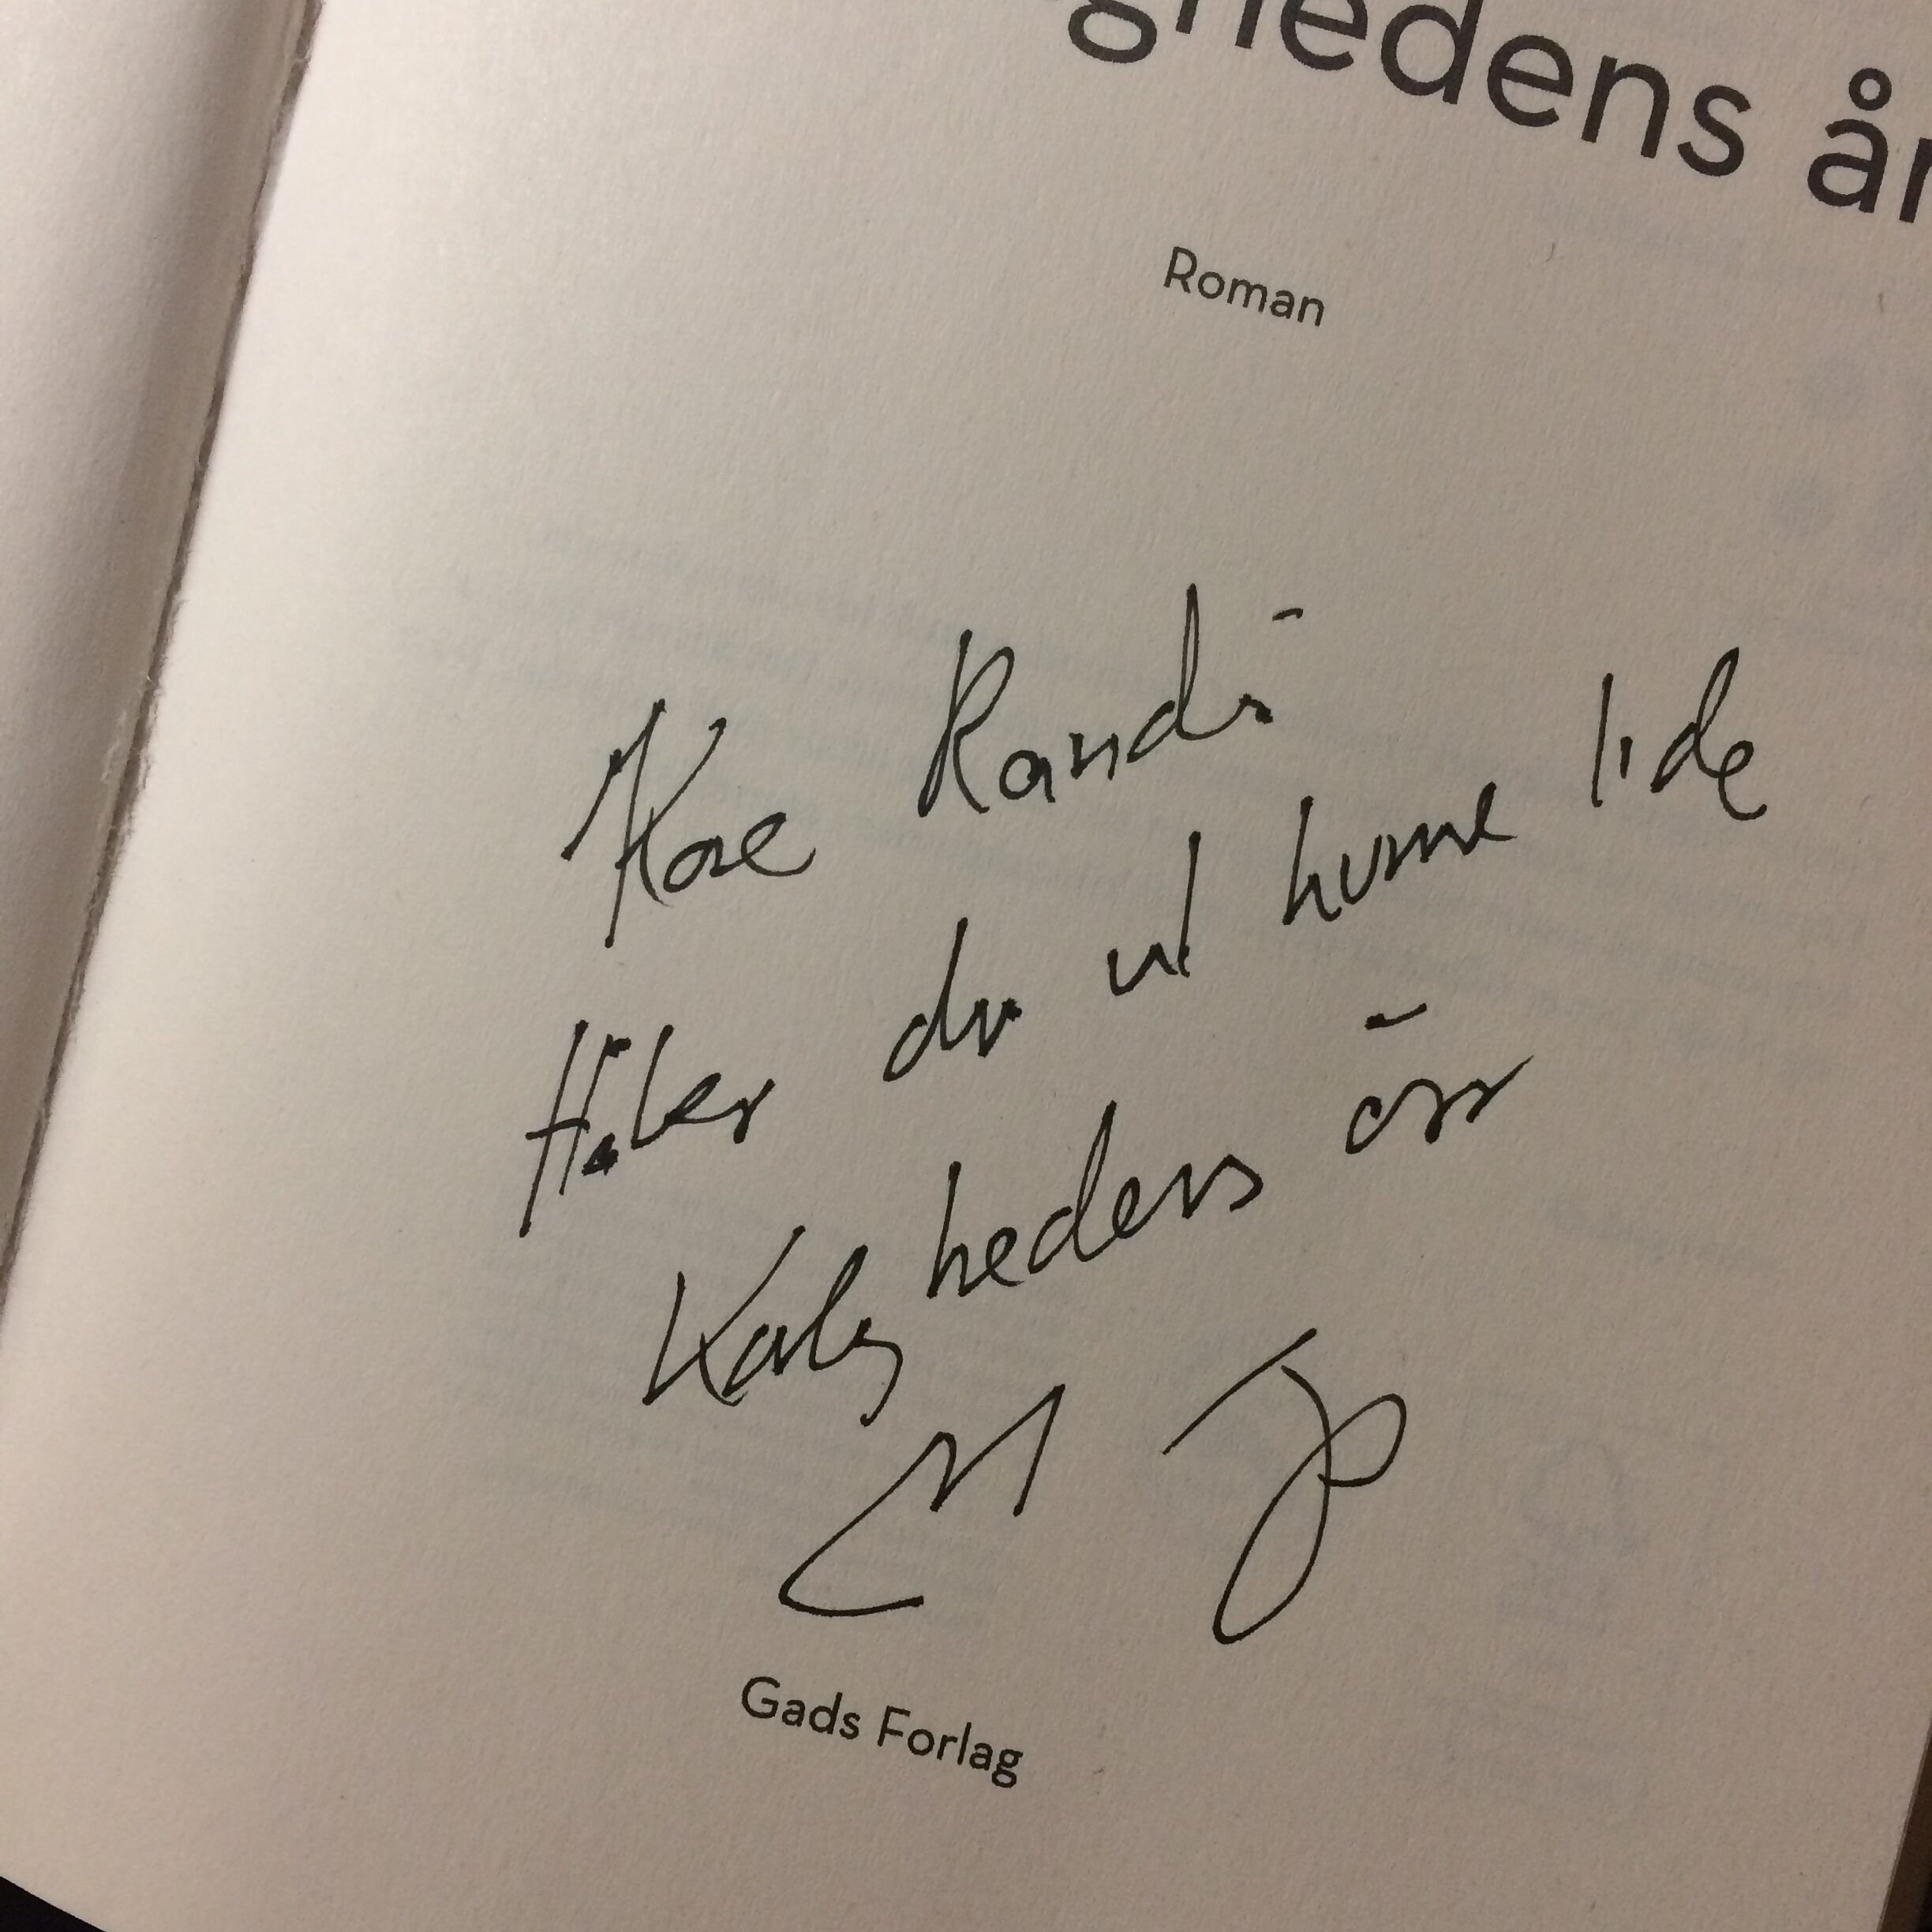 ghedens år
Roman
Kære Randi
Håber du vil kunne lide
Kærlighedens år
Gads Forlag